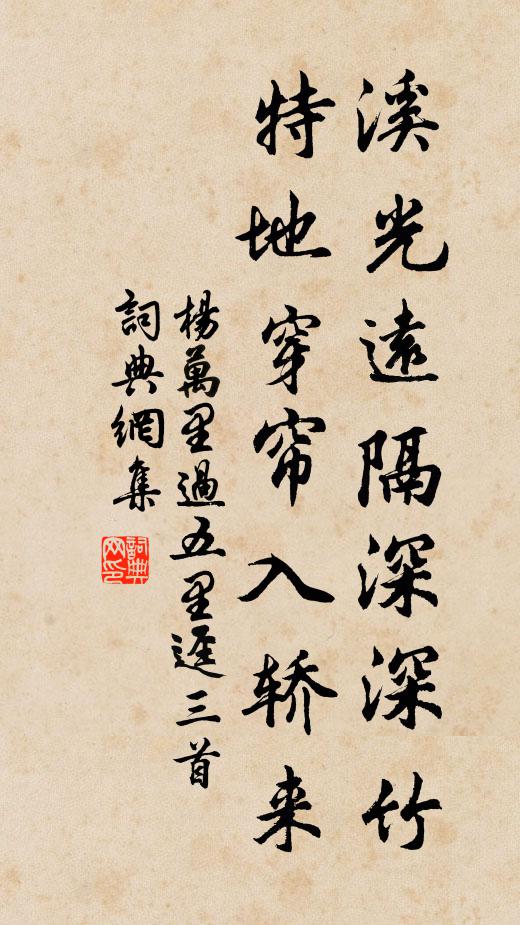 溪光遠隔深深竹
特地穿帘入轿来
楊萬里過五里逕三首
詞典網集
詞典網印